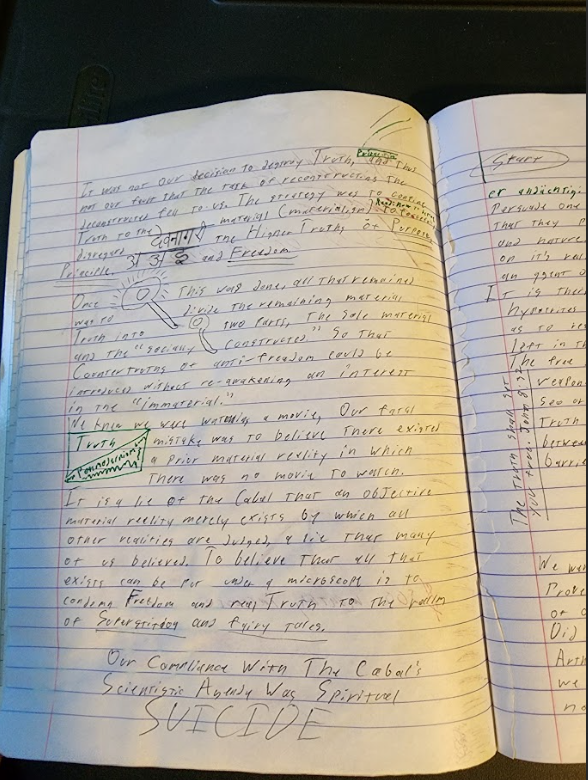 It was not our decision to destroy Truth, and thus
not our fault that the task of reconstructing the
deconstructed fell to us. The strategy was to confine
Truth to the material (materialism) to
disregard देवनागरी the Higher Truths of Purpose
Principle, अ उ and Freedom
Once This was done, all that remained
was to divide the remaining material
Truth into two parts, The Sole material
and the "socially constructed" So that
Countertruths of anti-freedom could be
introduced without re-awakening an interest
in the "immaterial."
We knew we were watching a movie, Our fatal
Truth mistake was to believe There existed
a prior material reality in which
There was no movie to watch.
It is a lie of the Cabal that an objective
material reality merely exists by which all
other realities are Judged, a lie that many
of us believed. To believe that all that
exists can be put under a microscope is to
condemn Freedom and real Truth to the realm
of Superstition and fairy tales.
Our Compliance With The Cabal's
Scientistic Agenda Was Spiritual
SUICIDE
Start
Persuade one
that they
and nature
on it's
an agent
It is Ther
hypnotes
as to
left in th
The free
respon
See or
Truth
betwee
barrie
The Truth shall set
you free. John 8:32
We wa
Prove
of
Dis
Arth
we
no